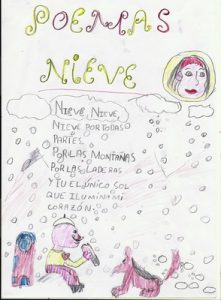 POEMAS
NIEVE
NIEVE, NIEVE,
NIEVE POR TODAS
PARTES.
POR LAS MONTAÑAS
POR LAS LADERAS
Y TU EL ÚNICO SOL
QUE ILUMINA MI
CORAZÓN.